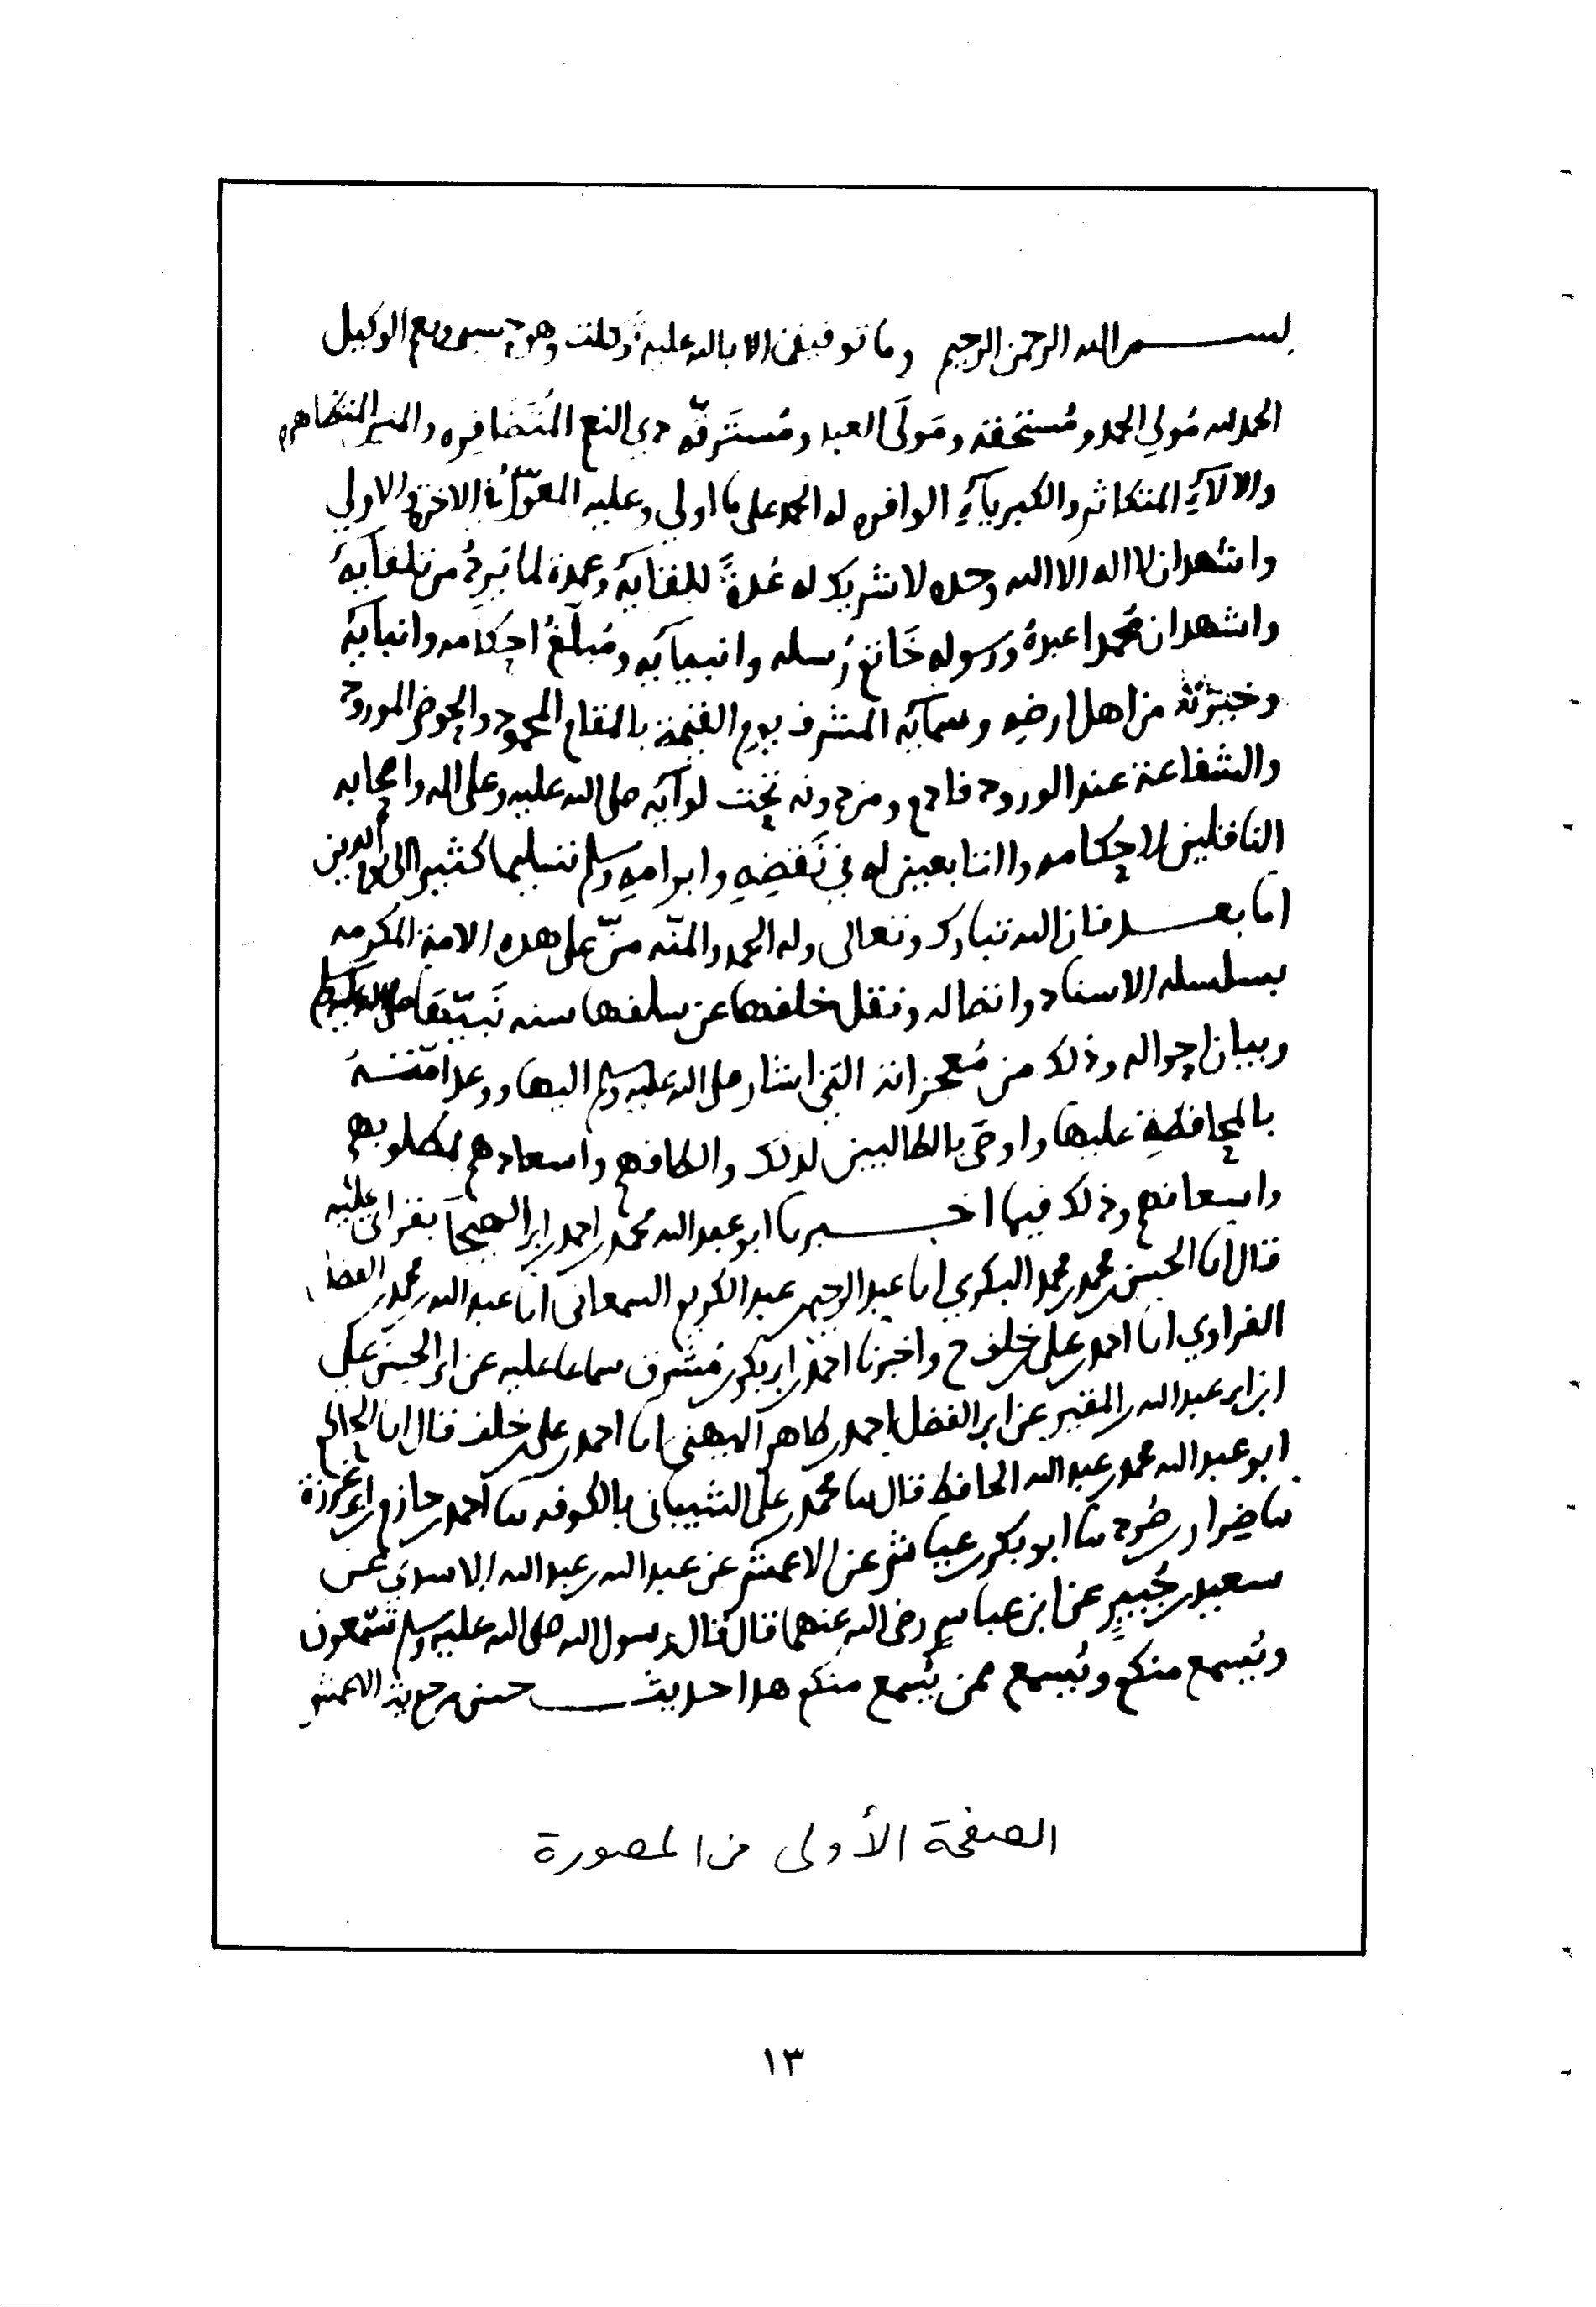 بسم الله الرحمن الرحيم وما توفيقي الا بالله عليه توكلت وهو حسبي ونعم الوكيل
الحمد لله مُولِي الحمد ومُستحقه ومَولَى العبد ومُستَرقّه ذي النعم المُتَضَافِره والمنن المتظاهره
والالآءِ المتكاثره والكبريآءِ الوافره له الحمد على ما اولي وعليه المعوّلُ في الاخرة والاولي
واشهد ان لا اله الا الله وحده لا شريك له عُدةً للقايه وعمدة لما يَرِدُ من تلقآيه
واشهد ان محمدا عبدهُ ورسوله خَاتم رُسله وانبيايه ومُبلّغُ احكامه وانبآيه
وخيرَته من اهل ارضه وسمآيه المشرف يوم القيمة بالمقام المحمود والحوض المورود
والشفاعة عند الورود فادم ومن دونه تحت لوآيه صلى الله عليه وعلى اله واصحابه
الناقلين لاحكامه والتابعين له في نَقضِهِ وابرامهِ وسلم تسليما كثيرا الى يوم الدين
اما بعد فان الله تبارك وتعالى وله الحمد والمنّه منّ على هذه الامة المكرمه
بسلسله الاسناد واتصاله ونقل خلفها عن سلفها سنه نَبيّهَا صلى الله عليه وسلم
وبيان احواله وذلك من مُعجزاته التي اشار صلى الله عليه وسلم اليها ووعد امتهُ
بالمحافظةِ عليها واوصَى بالطالبين لذلك والطافهم واسعادهم بمطلوبهم
واسعافهم وذلك فيما اخبرنا ابو عبد الله محمد بن احمد بن ابي الهيجآ بقراتي عليه
قال انا الحسن بن محمد بن محمد البكري انا عبد الرحيم بن عبد الكريم السمعاني انا عبد الله بن محمد بن الفضل
الفراوي انا احمد بن علي بن خلف ح واخبرنا احمد بن ابي بكر بن مُشرف سماعا عليه عن ابي الحسن علي
ابن ابي عبد الله بن المقير عن ابي الفضل احمد بن طاهر الميهني انا احمد بن علي بن خلف قال انا الحاكم
ابو عبد الله محمد بن عبد الله الحافظ قال ثنا محمد بن علي الشيباني بالكوفه ثنا احمد بن حازم بن ابي غرزة
ثنا ضِرار بن صُرد ثنا ابو بكر بن عياش عن الاعمش عن عبد الله بن عبد الله الاسدي عن
سعيد بن جُبيرٍ عن ابن عباسٍ رضي الله عنهما قال قال رسول الله صلى الله عليه وسلم تسمعون
ويُسمع منكم ويُسمع ممن يُسمع منكم هذا حديث حسن من حديث الاعمش
الصفحة الأولى من المصورة
١٣